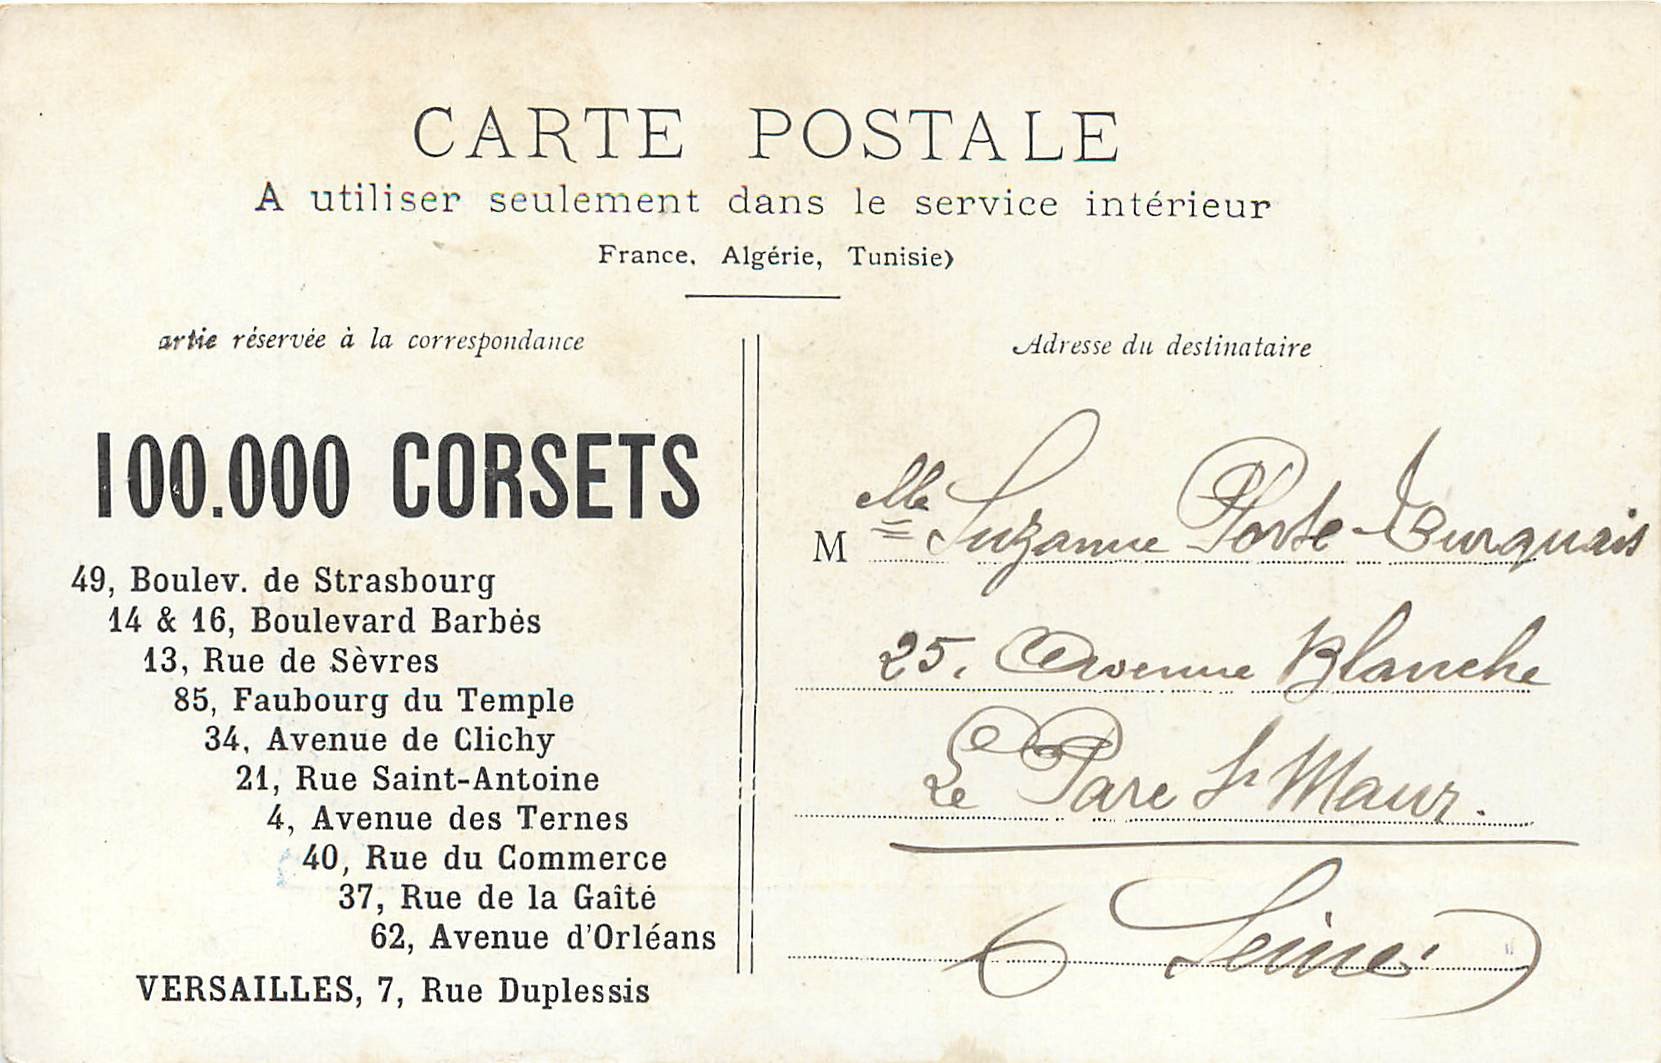 CARTE POSTALE
A utiliser seulement dans le service intérieur
France, Algérie, Tunisie)
artie réservée à la correspondance
100.000 CORSETS
49, Boulev. de Strasbourg
14 & 16, Boulevard Barbès
13, Rue de Sèvres
85, Faubourg du Temple
34, Avenue de Clichy
21, Rue Saint-Antoine
4, Avenue des Ternes
40, Rue du Commerce
37, Rue de la Gaîté
62, Avenue d'Orléans
VERSAILLES, 7, Rue Duplessis
Adresse du destinataire
M elle Suzanne Porte-Turquais
25, Avenue Blanche
Le Parc St Maur.
(Seine)